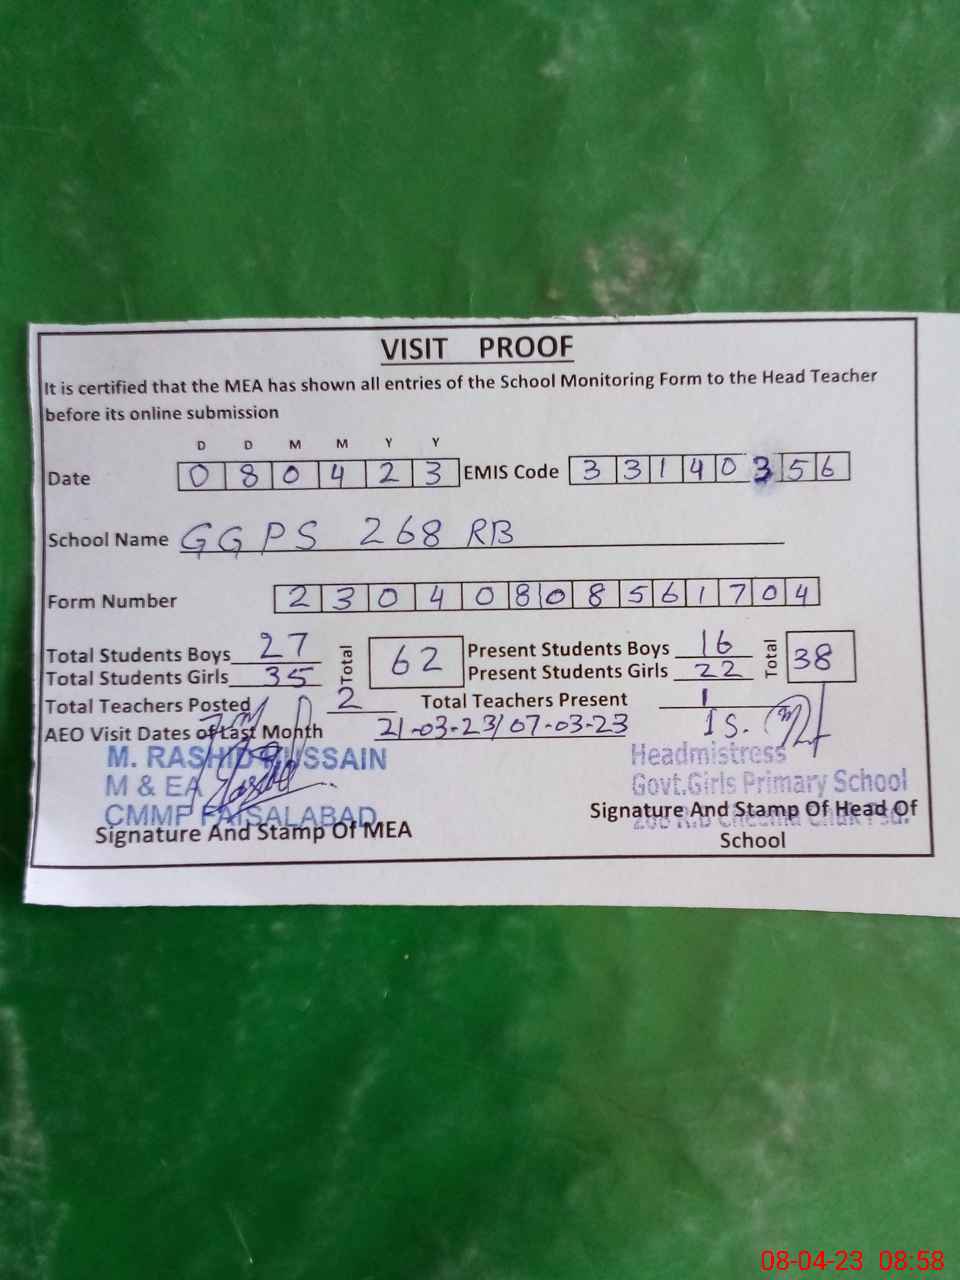 VISIT PROOF
It is certified that the MEA has shown all entries of the School Monitoring Form to the Head Teacher
before its online submission
D D M M Y Y
Date 0 8 0 4 2 3 EMIS Code 3 3 1 4 0 3 5 6
School Name GGPS 268 RB
Form Number 2 3 0 4 0 8 0 8 5 6 1 7 0 4
Total Students Boys 27 Total 62 Present Students Boys 16 Total 38
Total Students Girls 35 Present Students Girls 22
Total Teachers Posted 2 Total Teachers Present 1
AEO Visit Dates of Last Month 21-03-23/07-03-23 IS.
M. RASHID HUSSAIN
M & EA
CMMP FAISALABAD
Signature And Stamp Of MEA
Headmistress
Govt.Girls Primary School
268 R.B
Signature And Stamp Of Head Of
School
08-04-23 08:58